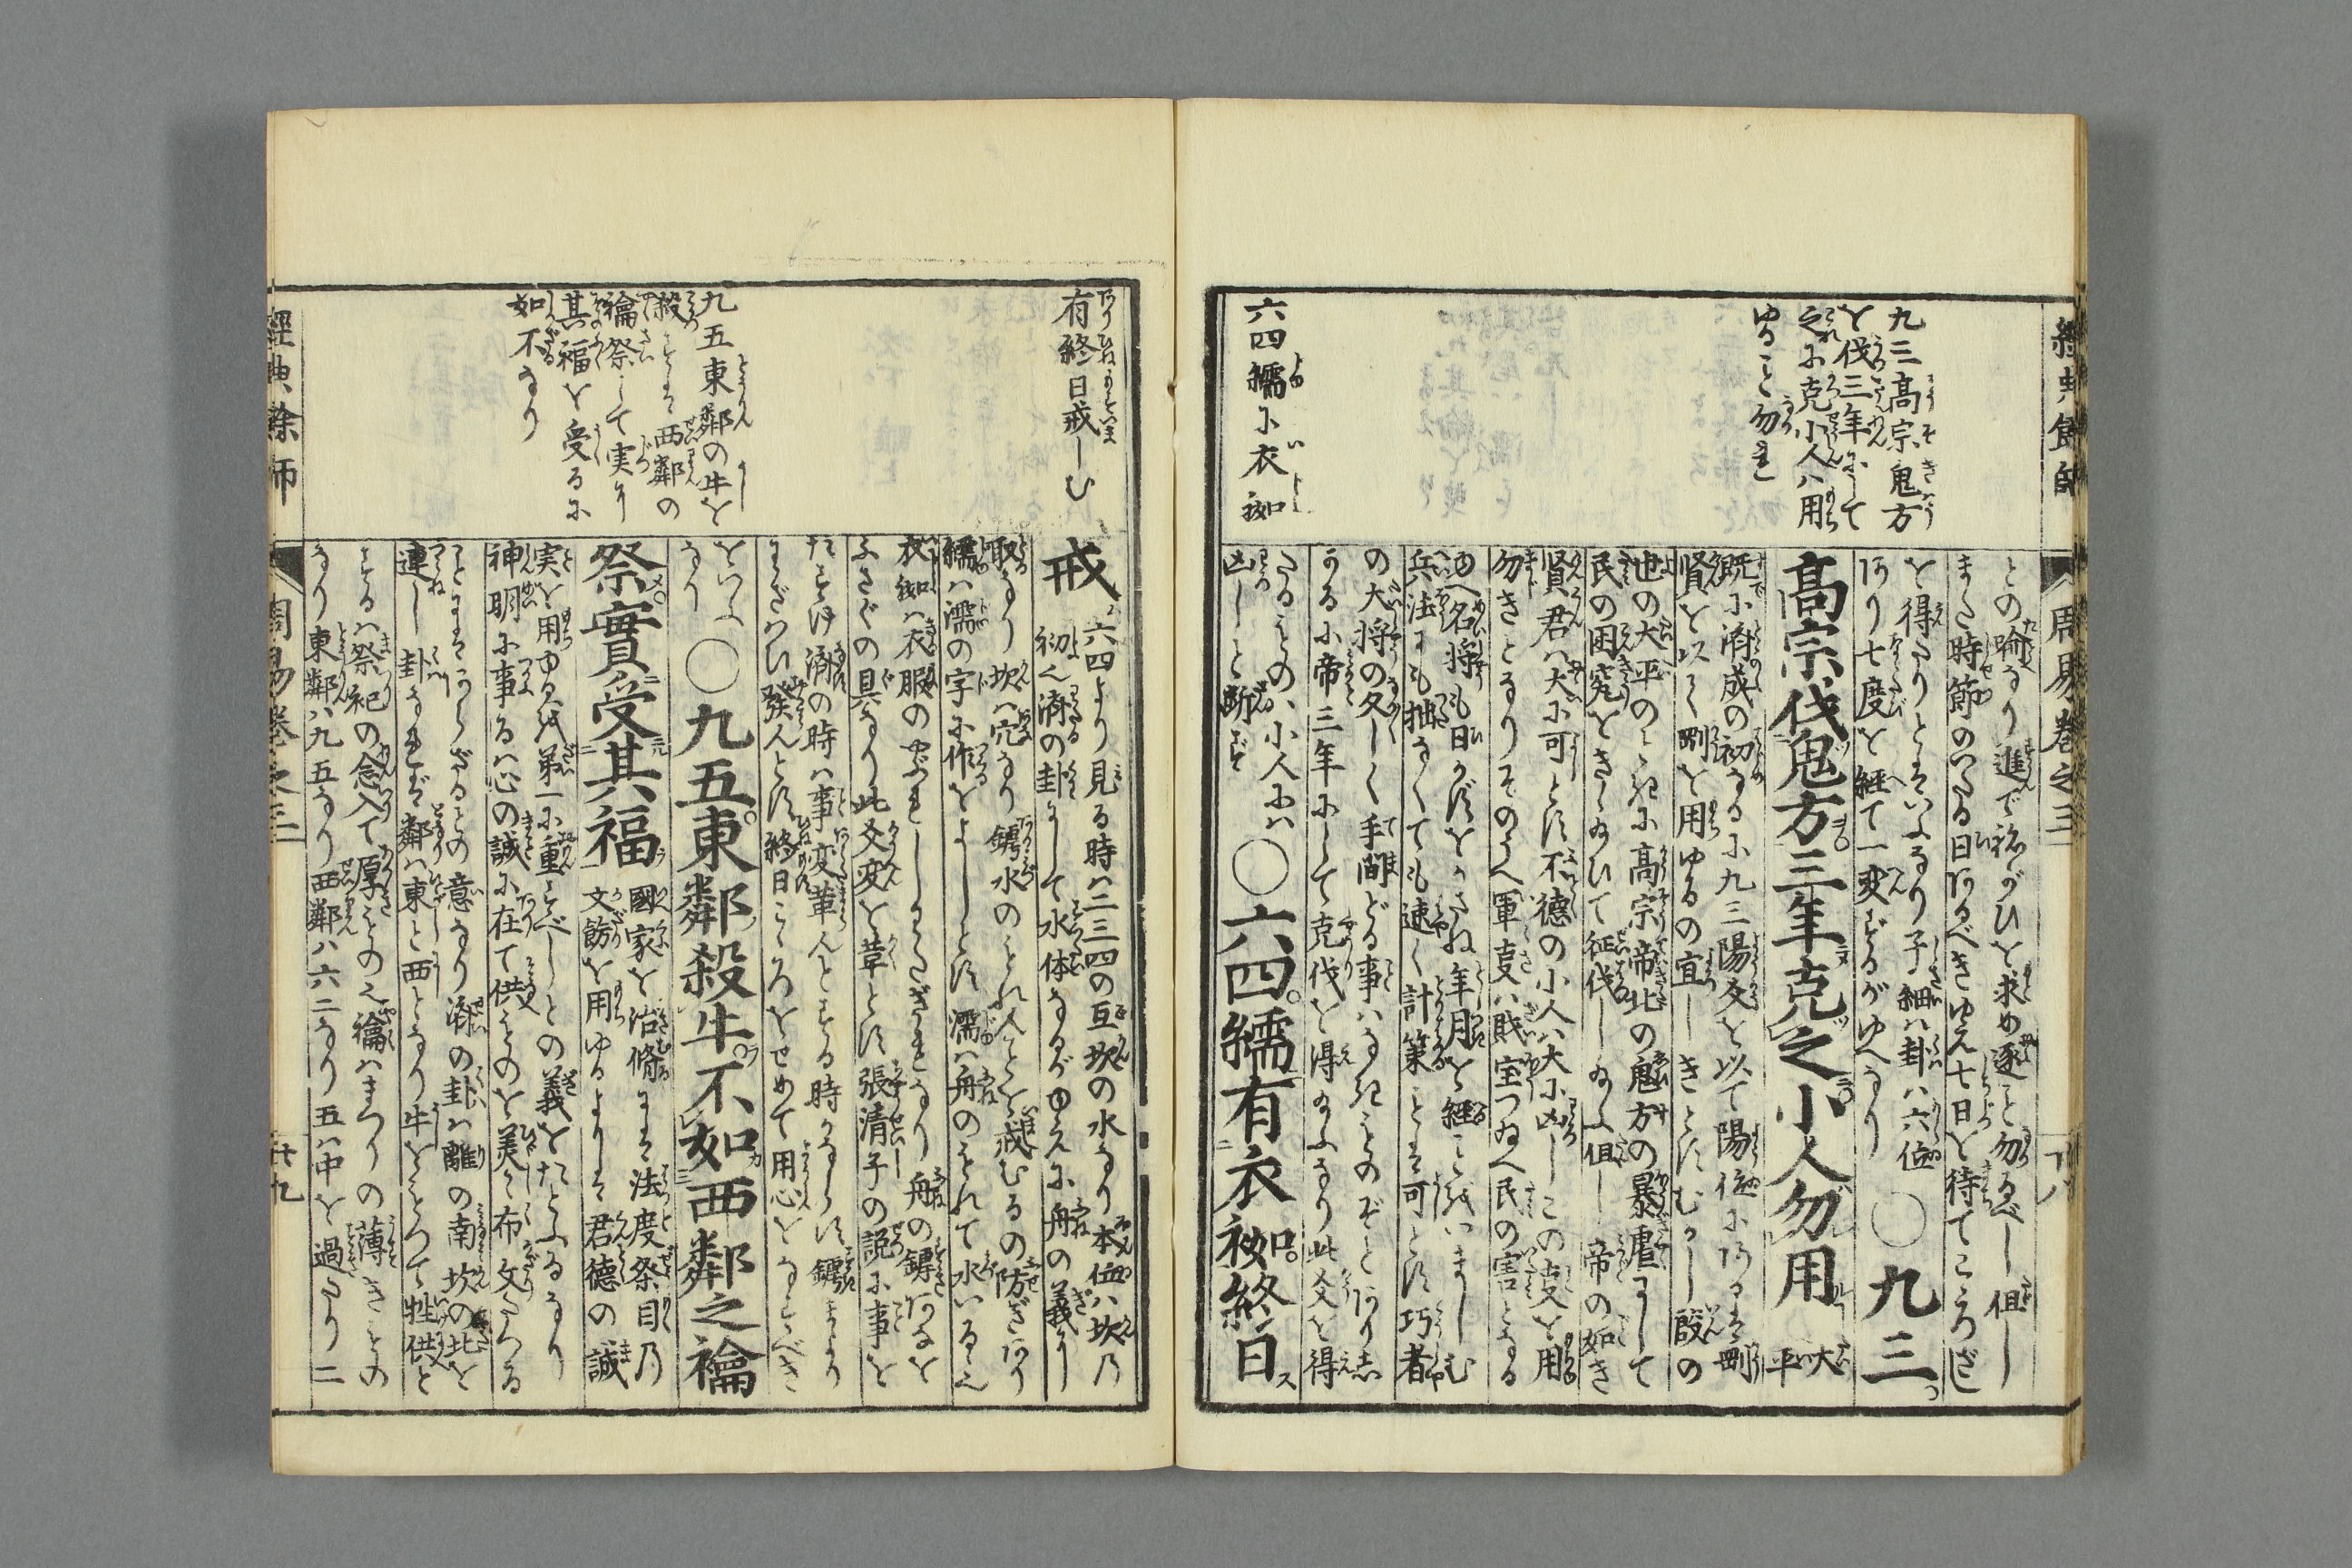 經典餘師
周易卷之三
九三高宗鬼方
を伐三年にして
之に克小人は用
ゆること勿れ
六四繻に衣袽
との喩なり進で祓がひを求め逐こと勿るべし但し
また時節のいたる日あるべきゆえ七日を待てこころざし
を得たりとはいふなり子細は卦は六位
あり七度を経て一変ずるがゆへなり
〇九三
高宗伐鬼方三年克之小人勿用
大平
既に済成の初なるに九三陽爻を以て陽位にあるは剛
賢を以て剛を用ゆるの宜しきとすむかし殷の
世の大平のときに高宗帝北の鬼方の暴虐にして
民の困究をきき給ひて征伐し給ふ但し帝の如き
賢君は大に可とす不徳の小人は大に凶しこの爻を用
勿きとなりそのうへ軍事は財宝つゐへ民の害となる
ゆへ名将も日かずをかさね年月を経ことをいましむ
兵法にも拙なくても速く計策ことは可とす巧者
の大将の久しく手間どる事はなきものぞとあり志
かるに帝三年にして克伐を得給ふなり此爻を得
たるもの小人には
凶しと断ず
〇六四繻有衣袽終日
有終日戒しむ
九五東鄰の牛を
殺ころは西鄰の
禴祭して実に
其福を受るに
如不なり
戒
六四より見る時は二三四の互坎の水なり本位は坎乃
初く済の卦にして水体なるがゆえに舟の義に
取なり坎は穴なり鏬水のもれ入ことを戒むるの防ぎあり
繻は濡の字に作をよしとす濡は舟のもれて水いるなり
衣袽は衣服のやぶれしきたぎれなり舟の鏬あなを
ふさぐの具なり此爻変を革とす張清子の説に事を
なすは済の時は事変革んとする時かならず鏬まより
わざはひ発んとす終日こころをせめて用心をなすべき
をいふ
なり
〇九五東鄰殺牛不如西鄰之禴
祭實受其福
國家を治脩には法度祭目乃
文飭を用ゆるよりは君德の誠
実を用ゆるを第一に重ずべしとの義をたとふるなり
神明に事るは心の誠に在て供ものを美々布文たつる
ことにはあらざるとの意なり済の卦は離の南坎の北を
連し卦なれば鄰は東と西となり牛をもつて牲供と
するは祭祀の念入て厚きもの之禴はまつりの薄きもの
なり東鄰は九五なり西鄰は六二なり五は中を過たり二
經典餘師
周易卷之三
廿九